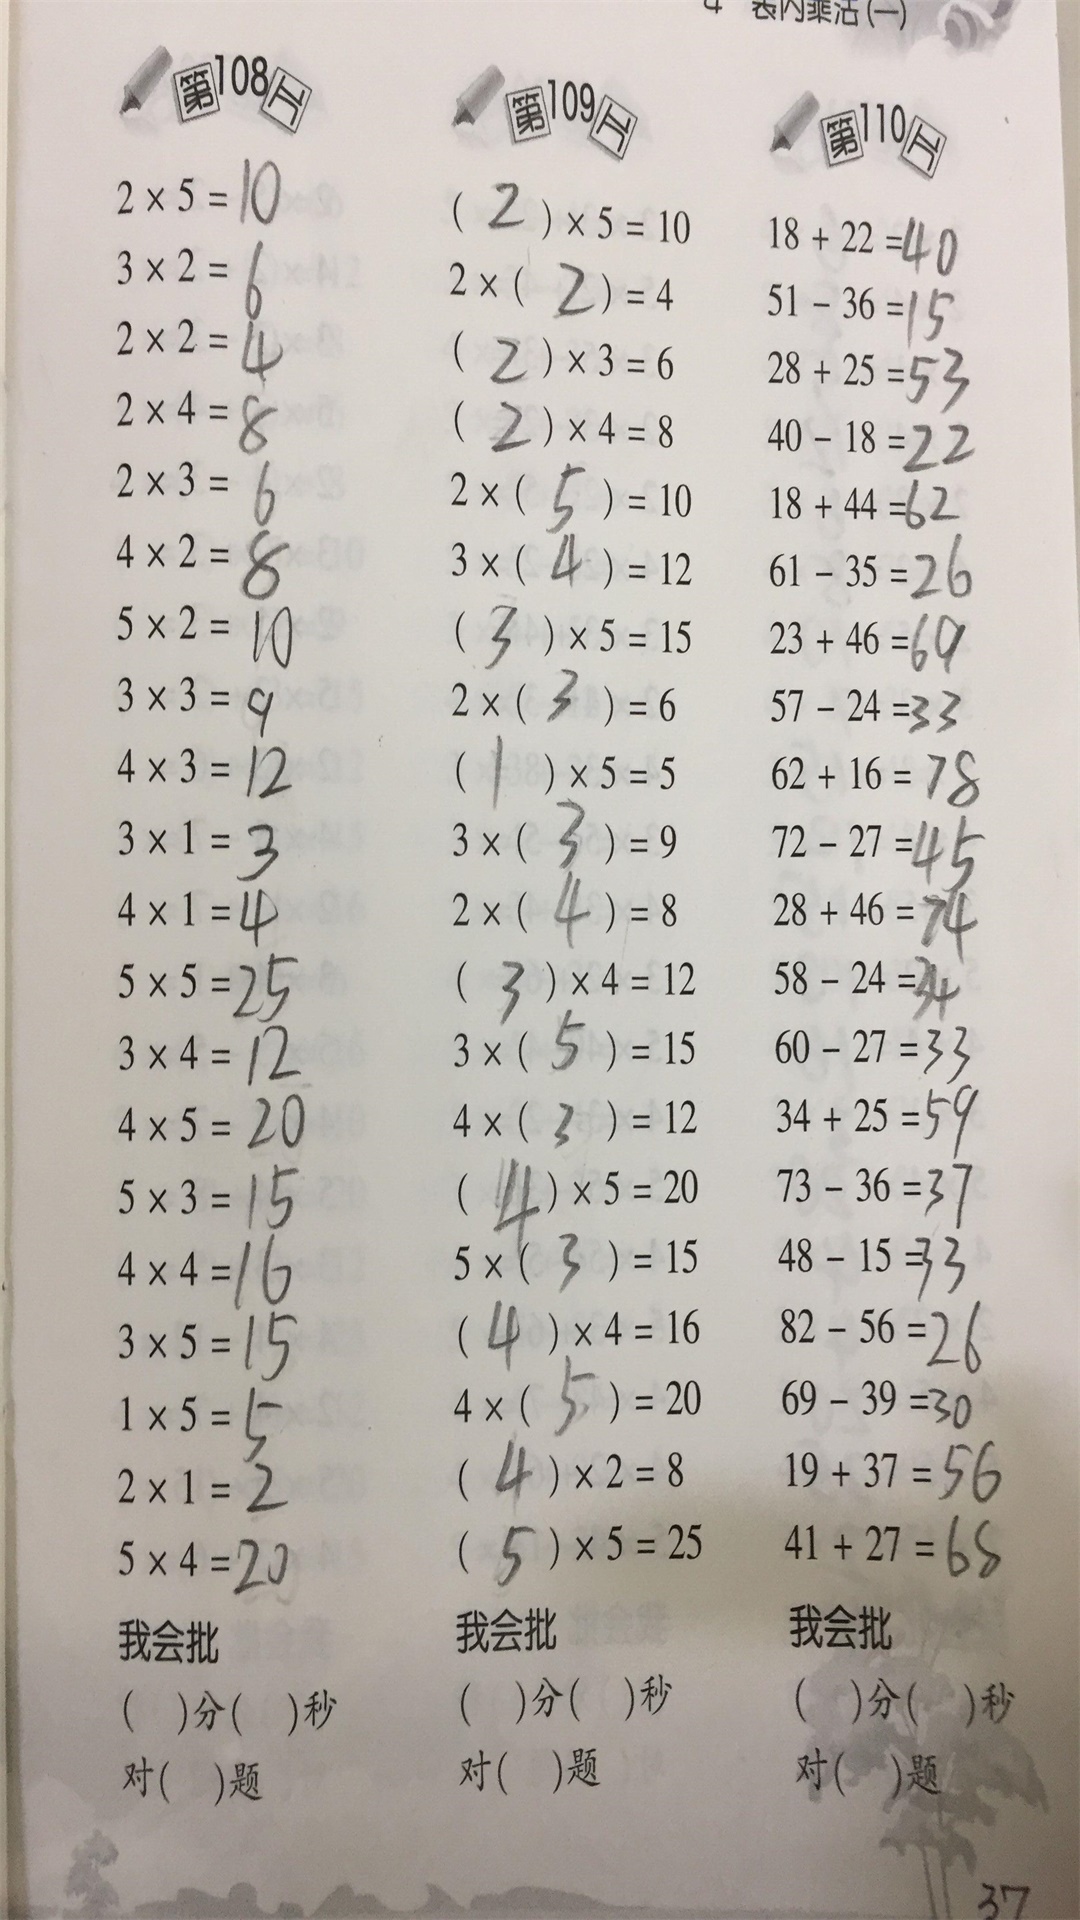 4 表内乘法(一)
第108工
2 × 5 = 10
3 × 2 = 6
2 × 2 = 4
2 × 4 = 8
2 × 3 = 6
4 × 2 = 8
5 × 2 = 10
3 × 3 = 9
4 × 3 = 12
3 × 1 = 3
4 × 1 = 4
5 × 5 = 25
3 × 4 = 12
4 × 5 = 20
5 × 3 = 15
4 × 4 = 16
3 × 5 = 15
1 × 5 = 5
2 × 1 = 2
5 × 4 = 20
我会批
( )分( )秒
对( )题
第109工
( 2 ) × 5 = 10
2 × ( 2 ) = 4
( 2 ) × 3 = 6
( 2 ) × 4 = 8
2 × ( 5 ) = 10
3 × ( 4 ) = 12
( 3 ) × 5 = 15
2 × ( 3 ) = 6
( 1 ) × 5 = 5
3 × ( 3 ) = 9
2 × ( 4 ) = 8
( 3 ) × 4 = 12
3 × ( 5 ) = 15
4 × ( 3 ) = 12
( 4 ) × 5 = 20
5 × ( 3 ) = 15
( 4 ) × 4 = 16
4 × ( 5 ) = 20
( 4 ) × 2 = 8
( 5 ) × 5 = 25
我会批
( )分( )秒
对( )题
第110工
18 + 22 = 40
51 − 36 = 15
28 + 25 = 53
40 − 18 = 22
18 + 44 = 62
61 − 35 = 26
23 + 46 = 69
57 − 24 = 33
62 + 16 = 78
72 − 27 = 45
28 + 46 = 74
58 − 24 = 34
60 − 27 = 33
34 + 25 = 59
73 − 36 = 37
48 − 15 = 33
82 − 56 = 26
69 − 39 = 30
19 + 37 = 56
41 + 27 = 68
我会批
( )分( )秒
对( )题
37